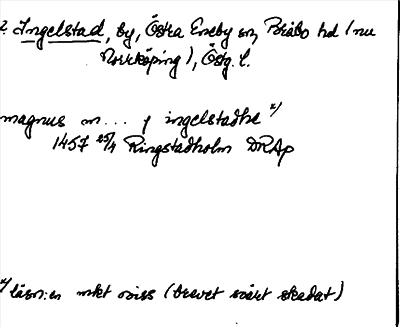 2. Ingelstad, by, Östra Eneby sn, Bråbo hd (nu
Norrköping), Östg. l.
magnus m... j ingelstadhe x/
1457 25/4 Ringstadholm DRAp
x/ läsn:en mkt oviss (brevet svårt skadat)